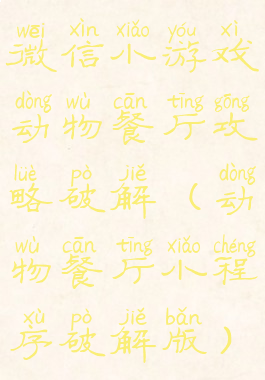 wēi xìn xiǎo yóu xì
微信小游戏
dòng wù cān tīng gōng
动物餐厅攻
lüè pò jiě dòng
略破解（动
wù cān tīng xiǎo chéng
物餐厅小程
xù pò jiě bǎn
序破解版）